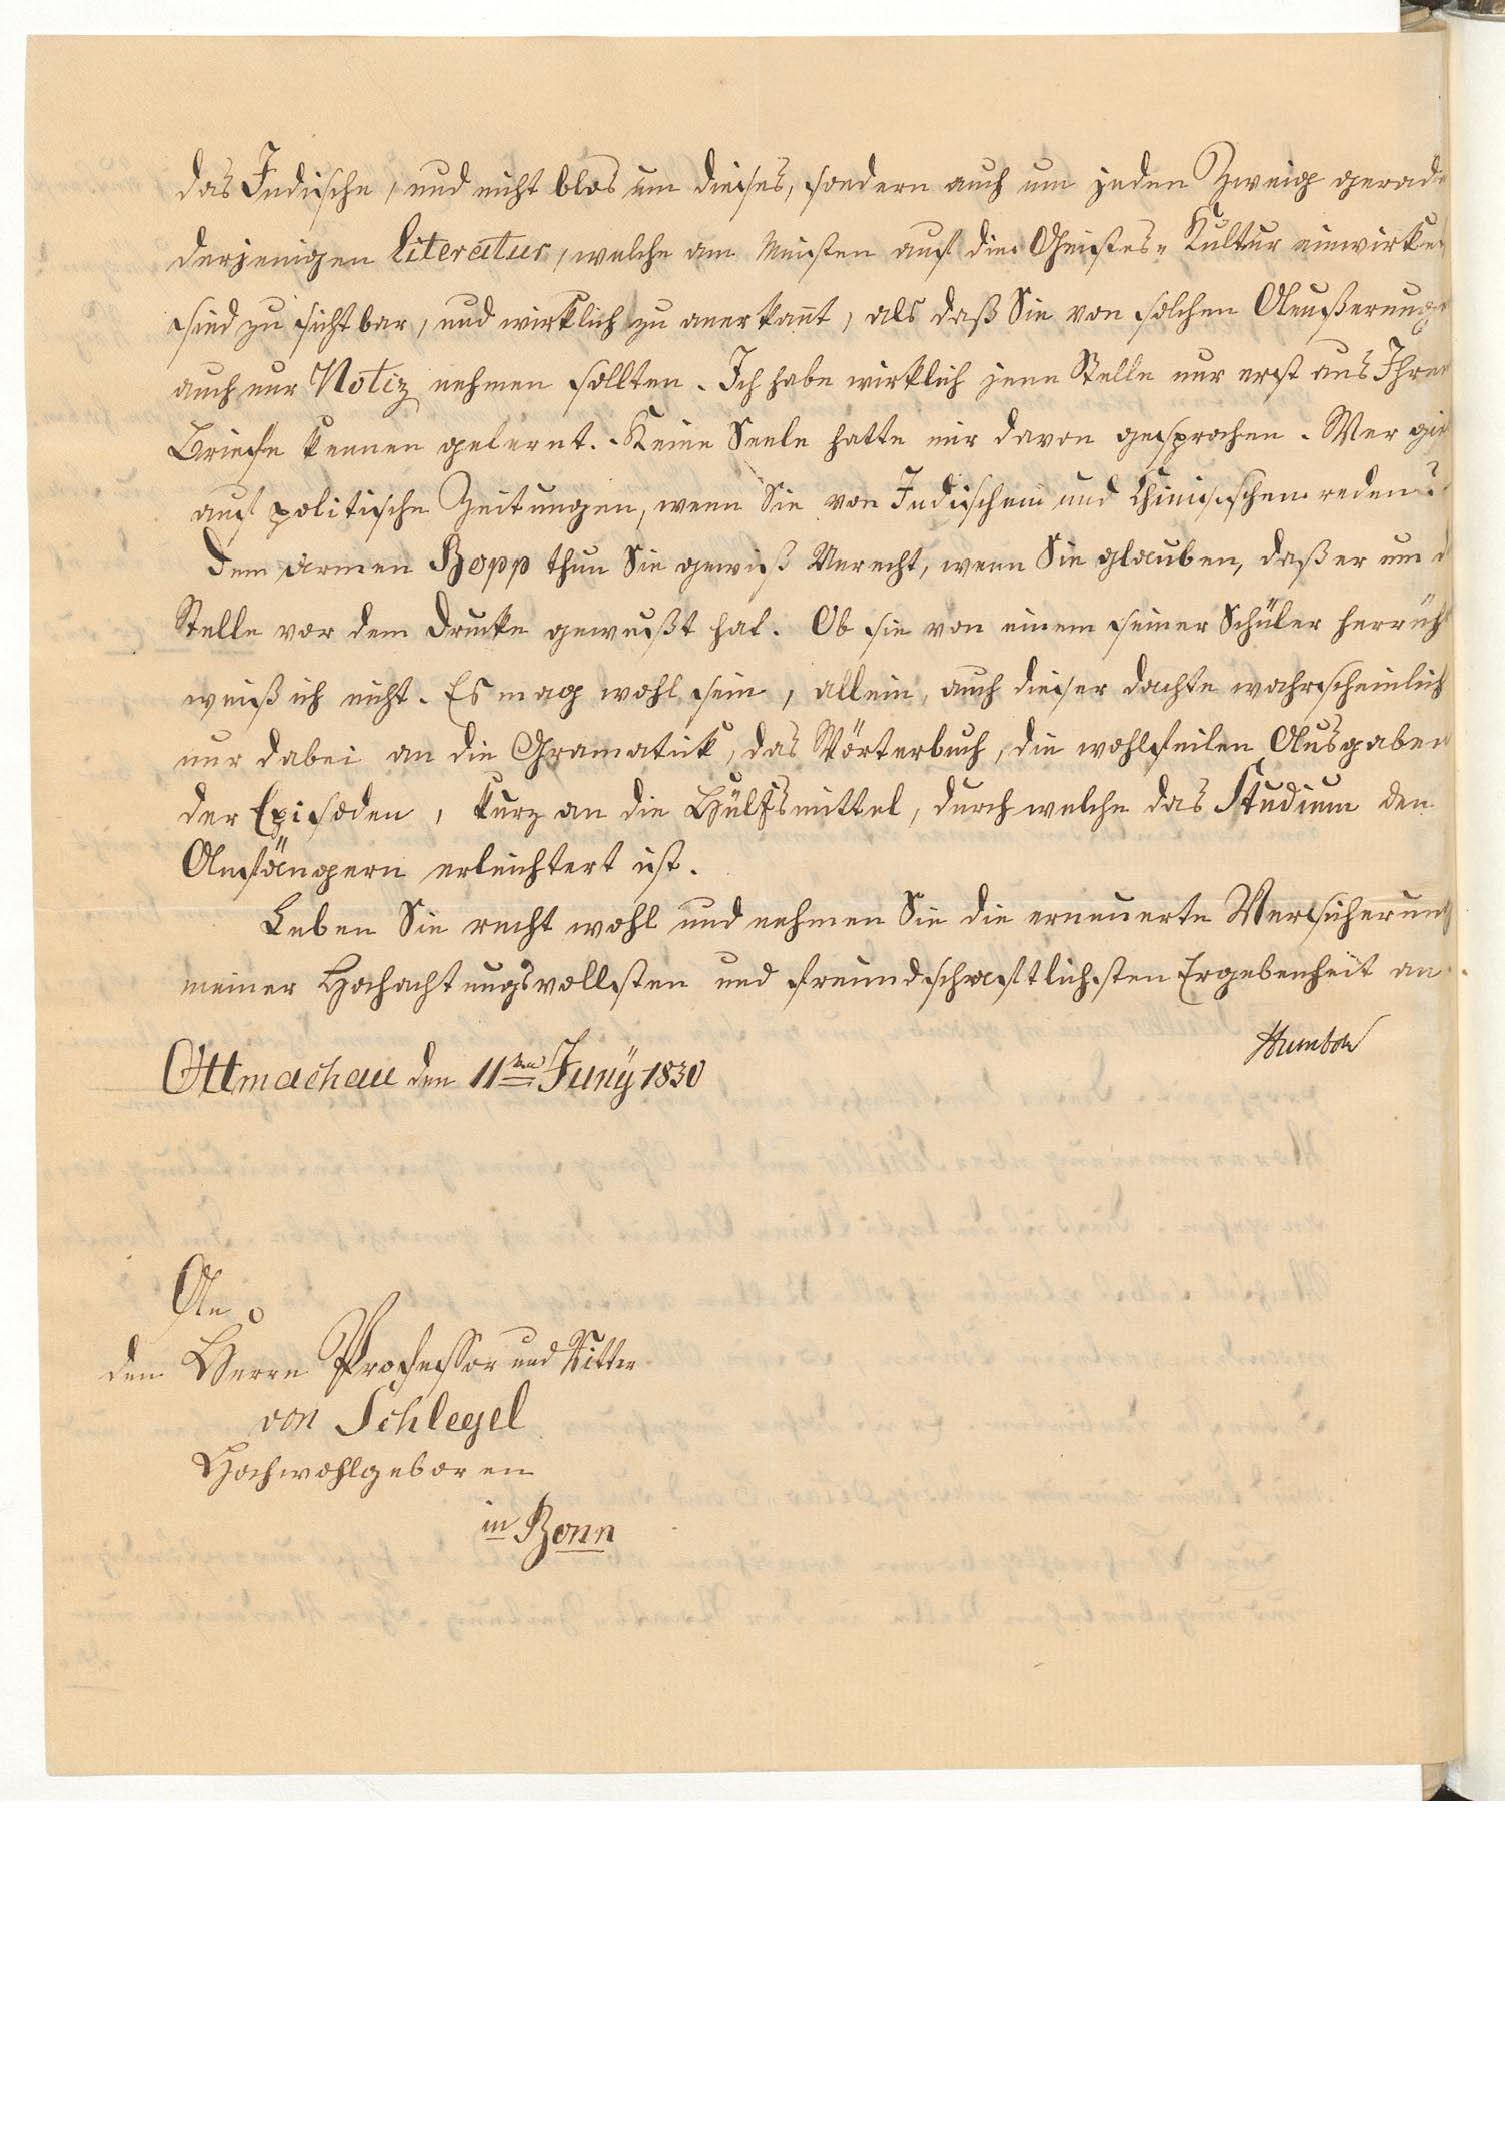 das Indische, und nicht blos um dieses, sondern auch um jeden Zweig gerade
derjenigen Literatur, welche am Meisten auf die Geistes-Kultur einwirken
sind zu sichtbar, und wirklich zu anerkannt, als daß Sie von solchen Aeußerunge
auch nur Notiz nehmen sollten. Ich habe wirklich jene Stelle nur erst aus Ihrem
Briefe kennen gelernt. Keine Seele hatte mir davon gesprochen. Wer gie
auf politische Zeitungen, wenn Sie von Indischem und Chinesischem reden?
Dem armen Bopp thun Sie gewiß Unrecht, wenn Sie glauben, daß er um d
Stelle vor dem Drucke gewußt hat. Ob sie von einem seiner Schüler herrüh
weiß ich nicht. Es mag wohl sein, allein, auch dieser dachte wahrscheinlich
nur dabei an die Gramatik, das Wörterbuch, die wohlfeilen Ausgaben
der Episoden, kurz an die Hülfsmittel, durch welche das Studium den
Anfängern erleichtert ist.
Leben Sie recht wohl und nehmen Sie die erneuerte Versicherung
meiner Hochachtungsvollsten und freundschaftlichsten Ergebenheit an.
Humboldt
Ottmachau den 11ten Juny 1830
An
den Herrn Professor und Ritter
von Schlegel
Hochwohlgeboren
in Bonn